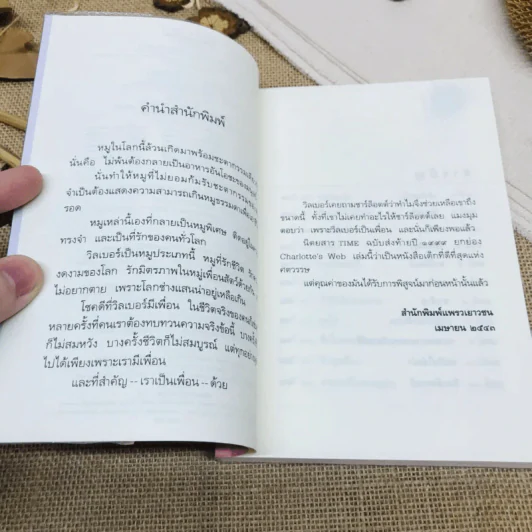 คำนำสำนักพิมพ์
หมูในโลกนี้ล้วนเกิดมาพร้อมชะตากรรม
นั่นคือ ไม่พ้นต้องกลายเป็นอาหารอันโอชะของ
นั่นทำให้หมูที่ไม่ยอมก้มรับชะตากรรม
จำเป็นต้องแสดงความสามารถเกินหมูธรรมดาเพื่อ
รอด
หมูเหล่านี้เองที่กลายเป็นหมูพิเศษ ติดอยู่ใน
ทรงจำ และเป็นที่รักของคนทั่วโลก
วิลเบอร์เป็นหมูประเภทนี้ หมูที่รักชีวิต
งดงามของโลก รักมิตรภาพในหมู่เพื่อนสัตว์ด้วยกัน
ไม่อยากตาย เพราะโลกช่างแสนน่าอยู่เหลือเกิน
โชคดีที่วิลเบอร์มีเพื่อน ในชีวิตจริงของคน
หลายครั้งที่คนเราต้องทบทวนความจริงข้อนี้ บางครั้ง
ก็ไม่สมหวัง บางครั้งชีวิตก็ไม่สมบูรณ์ แต่ทุกอย่าง
ไปได้เพียงเพราะเรามีเพื่อน
และที่สำคัญ -- เราเป็นเพื่อน -- ด้วย
วิลเบอร์เคยถามชาร์ล็อตต์ว่าทำไมจึงช่วยเหลือเขาถึง
ขนาดนี้ ทั้งที่เขาไม่เคยทำอะไรให้ชาร์ล็อตต์เลย แมงมุม
ตอบว่า เพราะวิลเบอร์เป็นเพื่อน และนั่นก็เพียงพอแล้ว
นิตยสาร TIME ฉบับส่งท้ายปี ๑๙๙๙ ยกย่อง
Charlotte's Web เล่มนี้ว่าเป็นหนังสือเด็กที่ดีที่สุดแห่ง
ศตวรรษ
แต่คุณค่าของมันได้รับการพิสูจน์มาก่อนหน้านั้นแล้ว
สำนักพิมพ์แพรวเยาวชน
เมษายน ๒๕๔๓